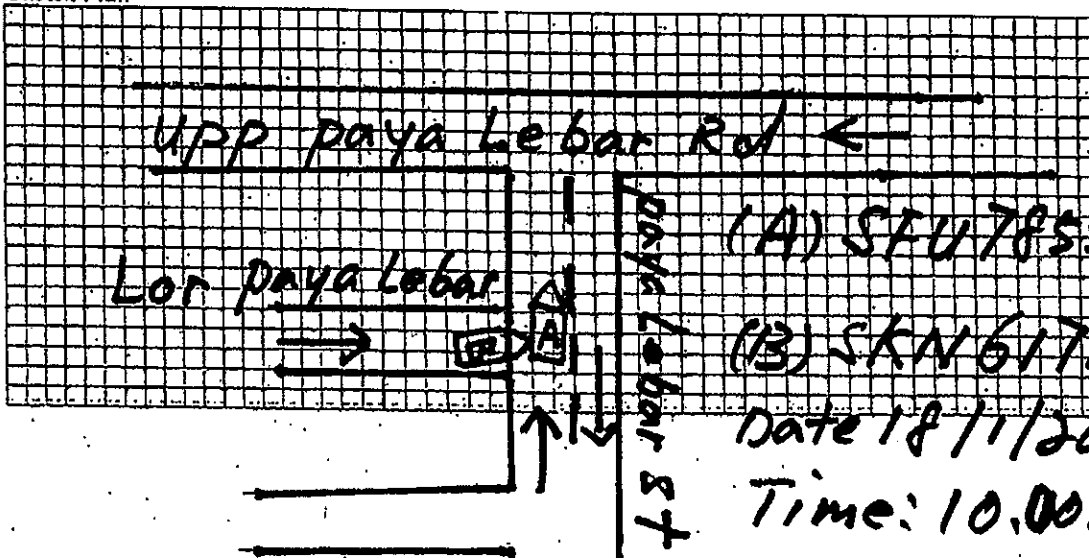 Upp paya Lebar Rd
Lor paya Lebar
A
B
paya Lebar St
(A) SFU 785
(B) SKN 617
Date 18/1/20
Time: 10.00